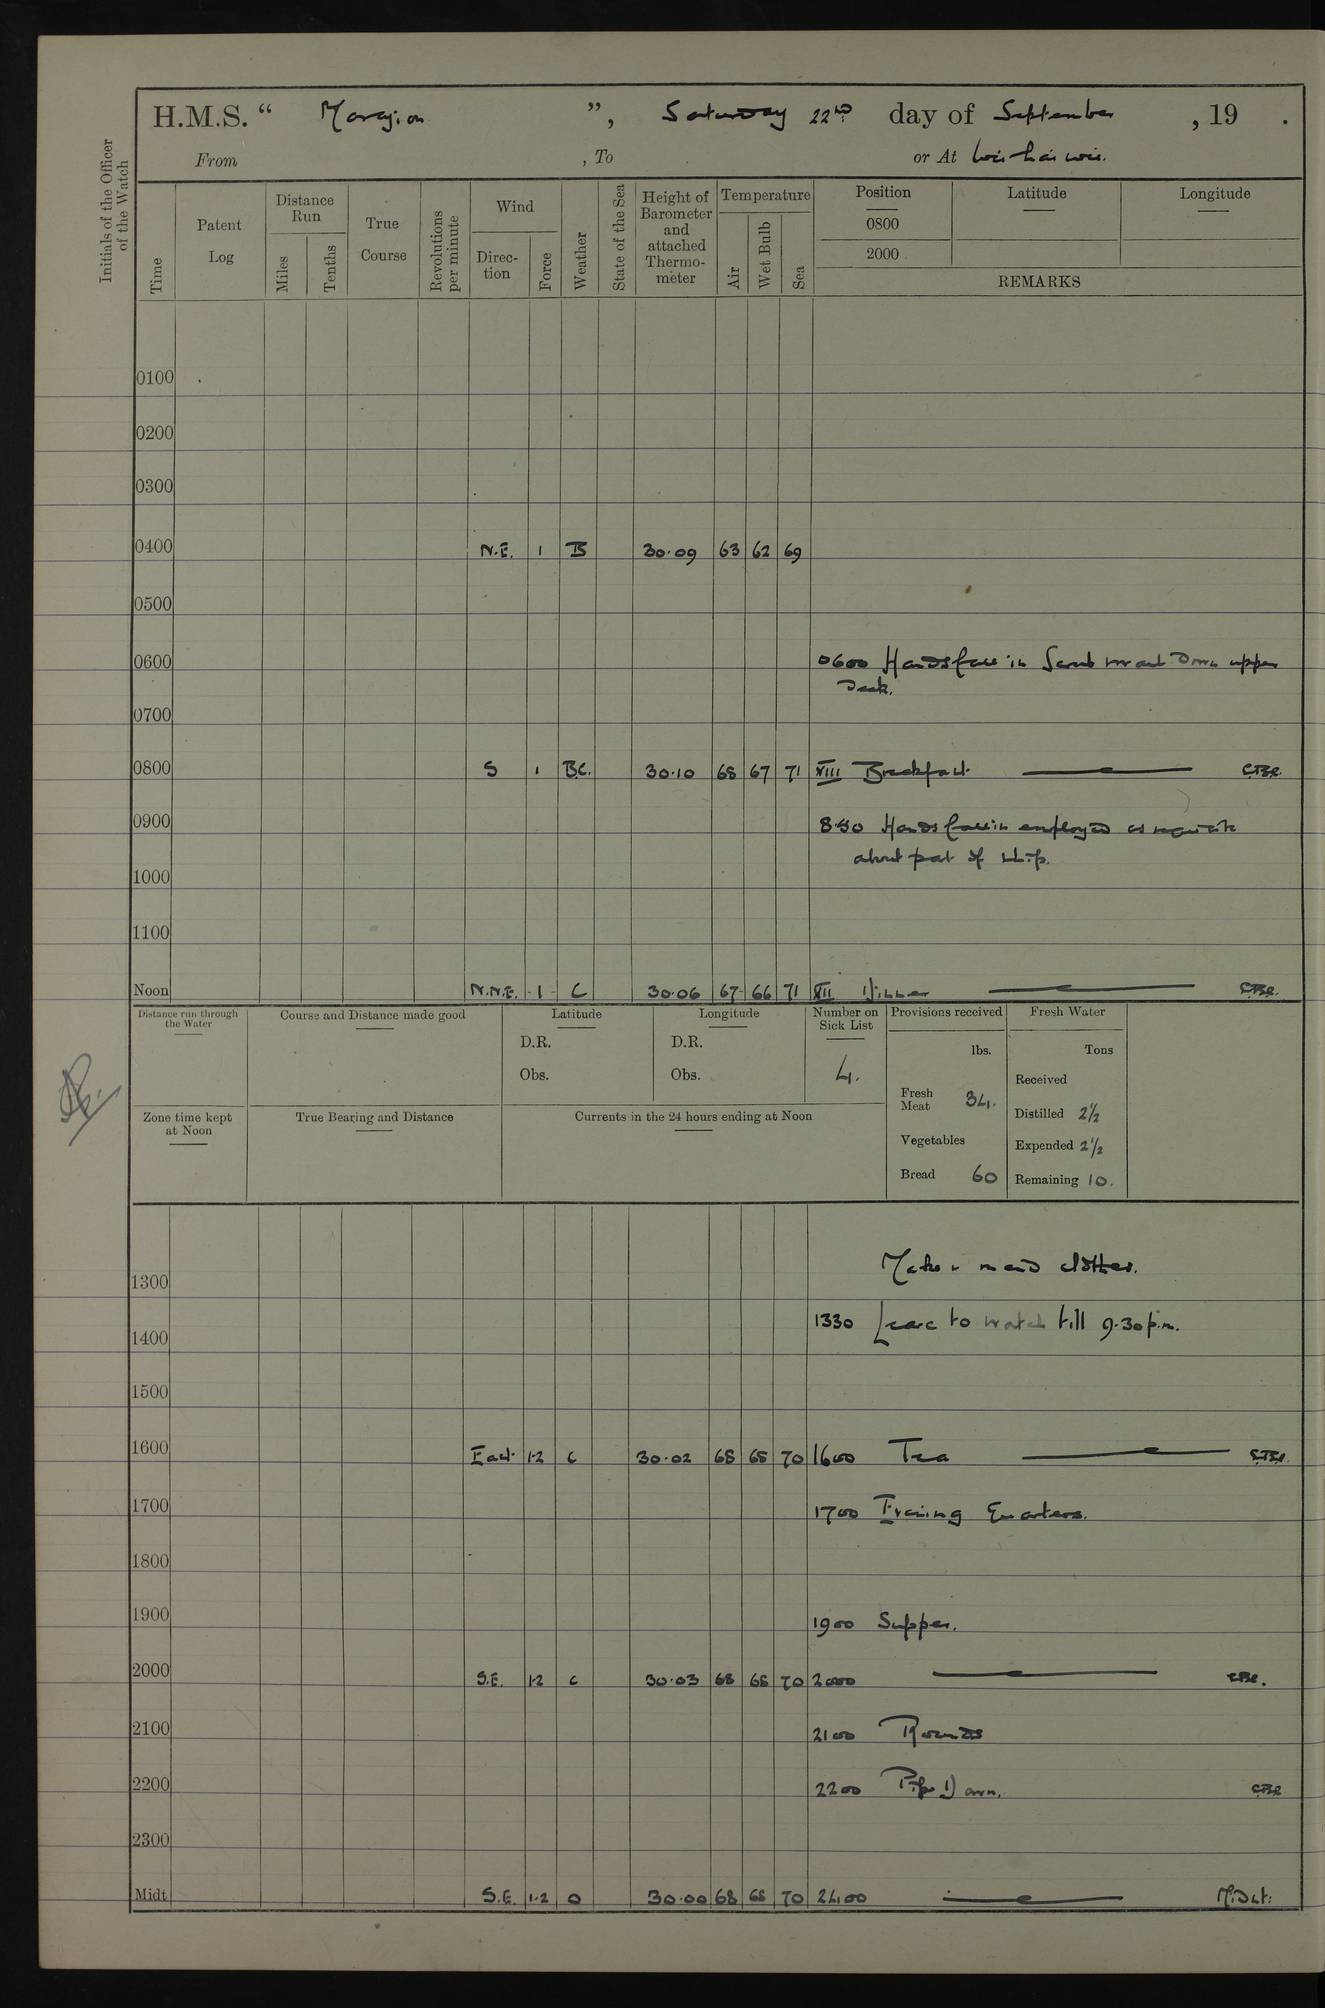 H.M.S. “ Marazion ”, Saturday 22nd day of September , 19 .
From , To or At Wei-hai-wei.
Initials of the Officer of the Watch
Time
Patent Log
Distance Run
Miles
Tenths
True Course
Revolutions per minute
Wind
Direc-tion
Force
Weather
State of the Sea
Height of Barometer and attached Thermo-meter
Temperature
Air
Wet Bulb
Sea
Position
0800
2000
Latitude
Longitude
REMARKS
0100
0200
0300
0400 N.E. 1 B 30.09 63 62 69
0500
0600 0600 Hands fall in Scrub & wash down upper
deck.
0700
0800 S 1 B.C. 30.10 68 67 71 VIII Breakfast. C.B.R.
0900 8.50 Hands fall in employed as requisite
about part of ship.
1000
1100
Noon N.N.E. 1 C 30.06 67 66 71 XII Dinner C.B.R.
Distance run through the Water
Course and Distance made good
Latitude
D.R.
Obs.
Longitude
D.R.
Obs.
Number on Sick List
4.
Provisions received
lbs.
Fresh Meat 34.
Vegetables
Bread 60
Fresh Water
Tons
Received
Distilled 2½
Expended 2½
Remaining 10.
Zone time kept at Noon
True Bearing and Distance
Currents in the 24 hours ending at Noon
Make & mend clothes.
1300
1330 Leave to watch till 9.30 p.m.
1400
1500
1600 East 1-2 C 30.02 68 68 70 1600 Tea C.B.R.
1700 1700 Evening Quarters.
1800
1900 1900 Supper.
2000 S.E. 1-2 C 30.03 68 68 70 2000 C.B.R.
2100 2100 Rounds
2200 2200 Pipe Down. C.B.R.
2300
Midt S.E. 1-2 O 30.00 68 68 70 2400